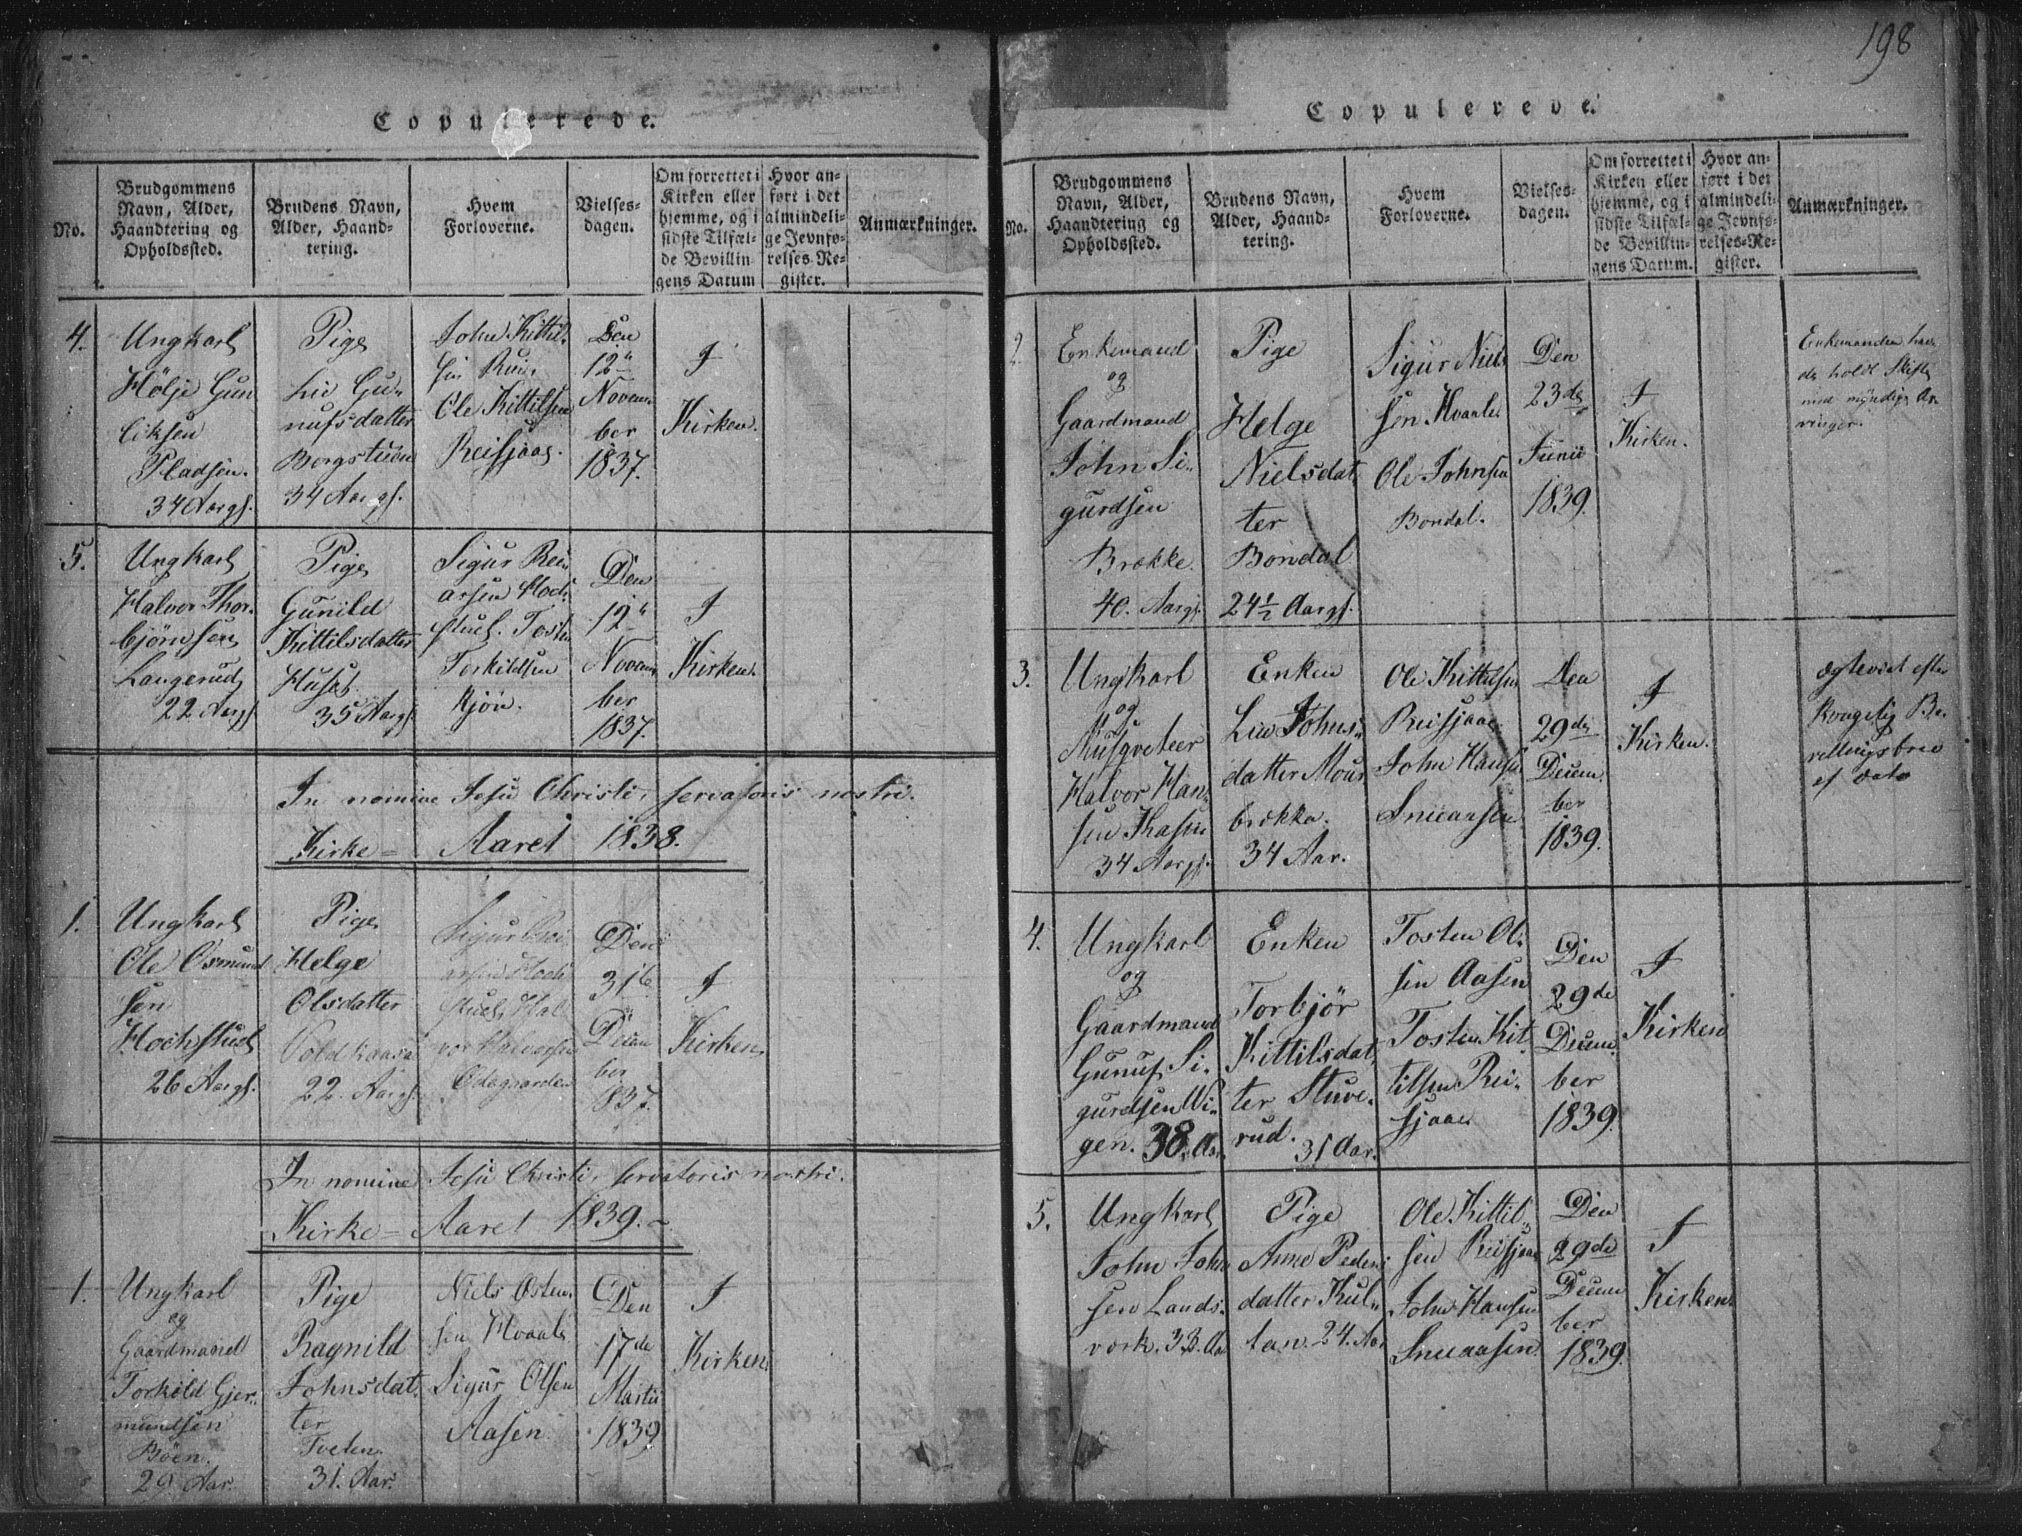 198
Copulerede.
No.
Brudgommens
Navn, Alder,
Haandtering og
Opholdssted.
Brudens Navn,
Alder, Haand-
tering.
Hvem
Forloverne.
Vielses-
dagen.
Om forrettet i
Kirken eller
hjemme, og i
sidste Tilfæl-
de Bevillin-
gens Datum
Hvor an-
ført i det
almindeli-
ge Jevnfø-
relses-Re-
gister.
Anmærkninger.
4.
Ungkarl
Hølje Gun
liksen
Pladsen.
34 Aargl.
Pige
Liv Gu-
nufsdatter
Bergstuen
34 Aargl.
John Kittil-
sen
Ole Kittilsen
Reisjaae.
Den
12te
Novem-
ber
1837.
I
Kirken.
5.
Ungkarl
Halvor Thor-
bjørnsen
Langerud
22 Aargl.
Pige
Gunild
Kittilsdatter
Huset
35 Aargl.
Sigur Rei-
arsen Hoch-
stuel. Tosten
Torkildsen
Kjøn.
Den
12te
Novem-
ber
1837.
I
Kirken.
In nomine Jesu Christi, servatoris nostri.
Kirke-Aaret 1838.
1.
Ungkarl
Ole Osmund
sen
Hochstuel
26 Aargl.
Pige
Helge
Olsdatter
Voldkaasa
22. Aargl.
Sigur Rei-
arsen Hoch
stuel, Hal
vor Halvorsen
Ødegaarden
Den
31te
Decem
ber
1837.
I
Kirken.
In nomine Jesu Christi, servatoris nostri.
Kirke-Aaret 1839.-
1.
Ungkarl
og
Gaardmand
Torkild Gjer-
mundsen
Bøen.
29. Aar.
Pige
Ragnild
Johnsdat-
ter
Tveten.
31. Aar.
Niels Osten-
sen Hvaale
Sigur Olsen
Aasen.
Den
17de
Martii
1839
I
Kirken.
Copulerede.
No.
Brudgommens
Navn, Alder,
Haandtering og
Opholdssted.
Brudens Navn,
Alder, Haand-
tering.
Hvem
Forloverne.
Vielses-
dagen.
Om forrettet i
Kirken eller
hjemme, og i
sidste Tilfæl-
de Bevillin-
gens Datum.
Hvor an-
ført i det
almindeli-
ge Jevnfø-
relses-Re-
gister.
Anmærkninger.
2.
Enkemand
og
Gaardmand
John Si-
gurdsen
Brække.
40. Aargl.
Pige
Helge
Nielsdat
ter
Bondal
24½ Aargl.
Sigur Niel-
sen Hvaale
Ole Johnsen
Bondal.
Den
23de
Junii
1839.
I
Kirken.
Enkemanden hav-
de holdt Skifte
med myndige Ar-
vinger.
3.
Ungkarl
og
Musqveteer
Halvor Han-
sen
34 Aargl.
Enken
Liv Johns-
datter Mour
brekka.
34 Aar.
Ole Kittilsen
Reisjaae
John Hansen
Sneaasen
Den
29de
Decem-
ber
1839.
I
Kirken.
Ægteviet efter
Kongelig Be-
villingsbrev
af Dato
4.
Ungkarl
og
Gaardmand
Gunuf Si-
gurdsen Wi-
gen. 38. Aar.
Enken
Torbjør
Kittilsdat-
ter Stuve-
rud.
31 Aar.
Tosten Ol-
sen Aasen
Tosten Kit-
tilsen Rei-
sjaae
Den
29de
Decem-
ber
1839.
I
Kirken
5.
Ungkarl
John John
sen Lands-
værk. 33. Aar
Pige
Anne Peders
datter Kul-
tan. 24. Aar
Ole Kittil-
sen Reisjaae
John Hansen
Sneaasen.
Den
29de
Decem
ber
1839.
I
Kirken.